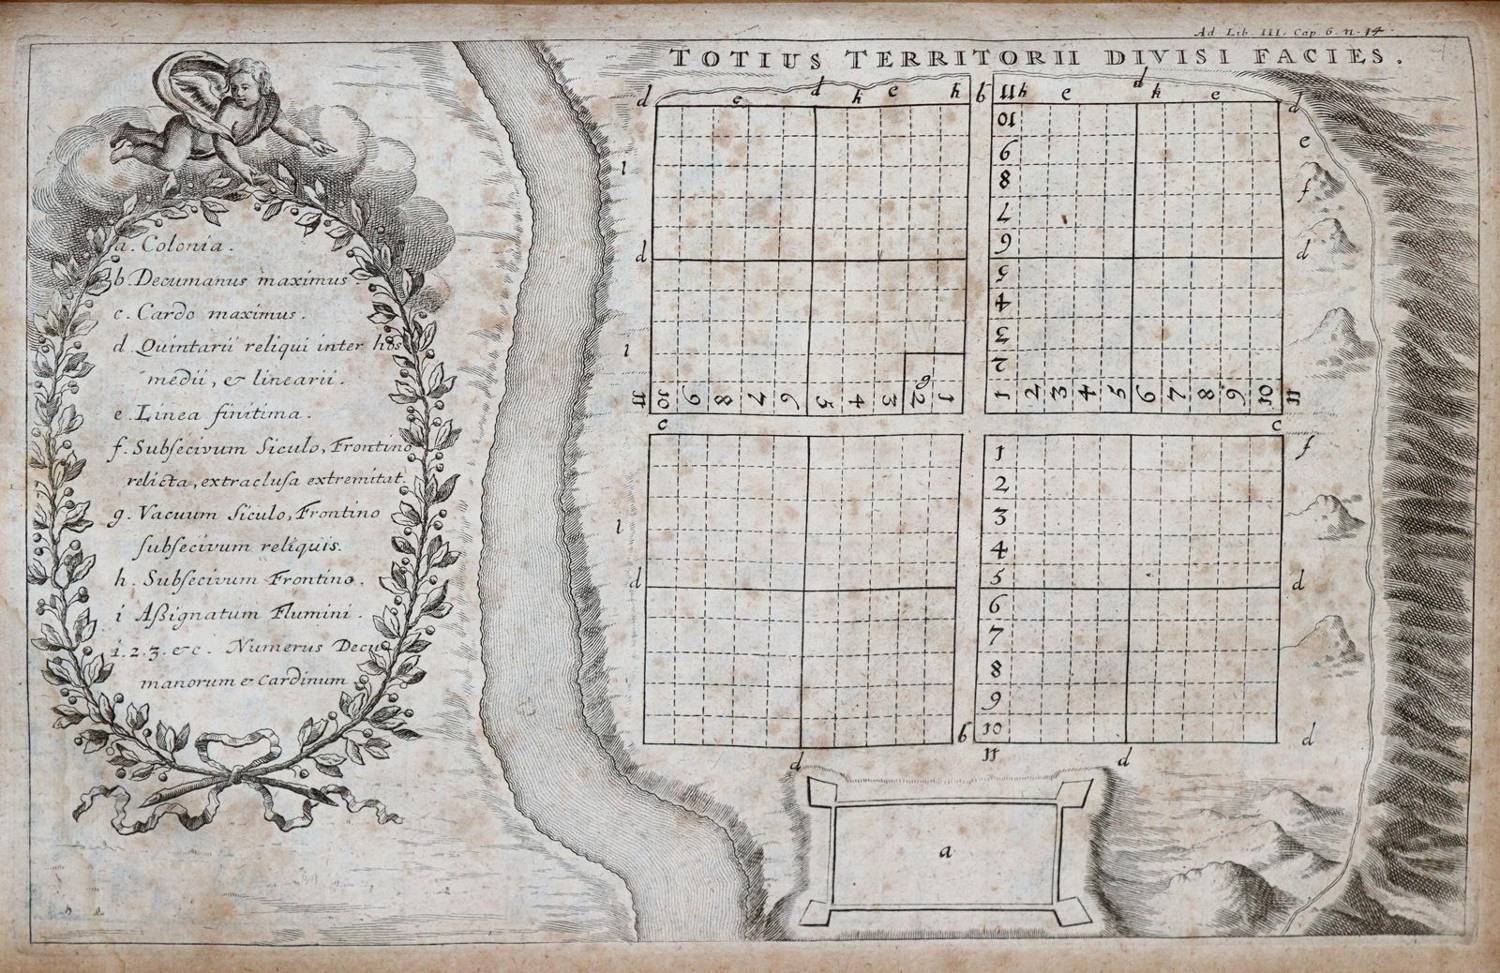 Ad Lib. III. Cap 6. n. 14
TOTIUS TERRITORII DIVISI FACIES.
a. Colonia.
b. Decumanus maximus.
c. Cardo maximus.
d. Quintarii reliqui inter hos
medii, & linearii.
e. Linea finitima.
f. Subsecivum Siculo, Frontino
relicta, extraclusa extremitat.
g. Vacuum Siculo, Frontino
subsecivum reliquis.
h. Subsecivum Frontino.
i Assignatum Flumini.
1. 2. 3. &c. Numerus Decu
manorum & Cardinum
d e d h e h b 11 h e d h e d
10
9
8
7
6
5
4
3
2
1 2 3 4 5 6 7 8 9 10 11
11 10 9 8 7 6 5 4 3 2 1
g
l
d
l
e
f
d
c
c
f
1
2
3
4
5
6
7
8
9
10
11
l
d
d
b
d
d
d
a